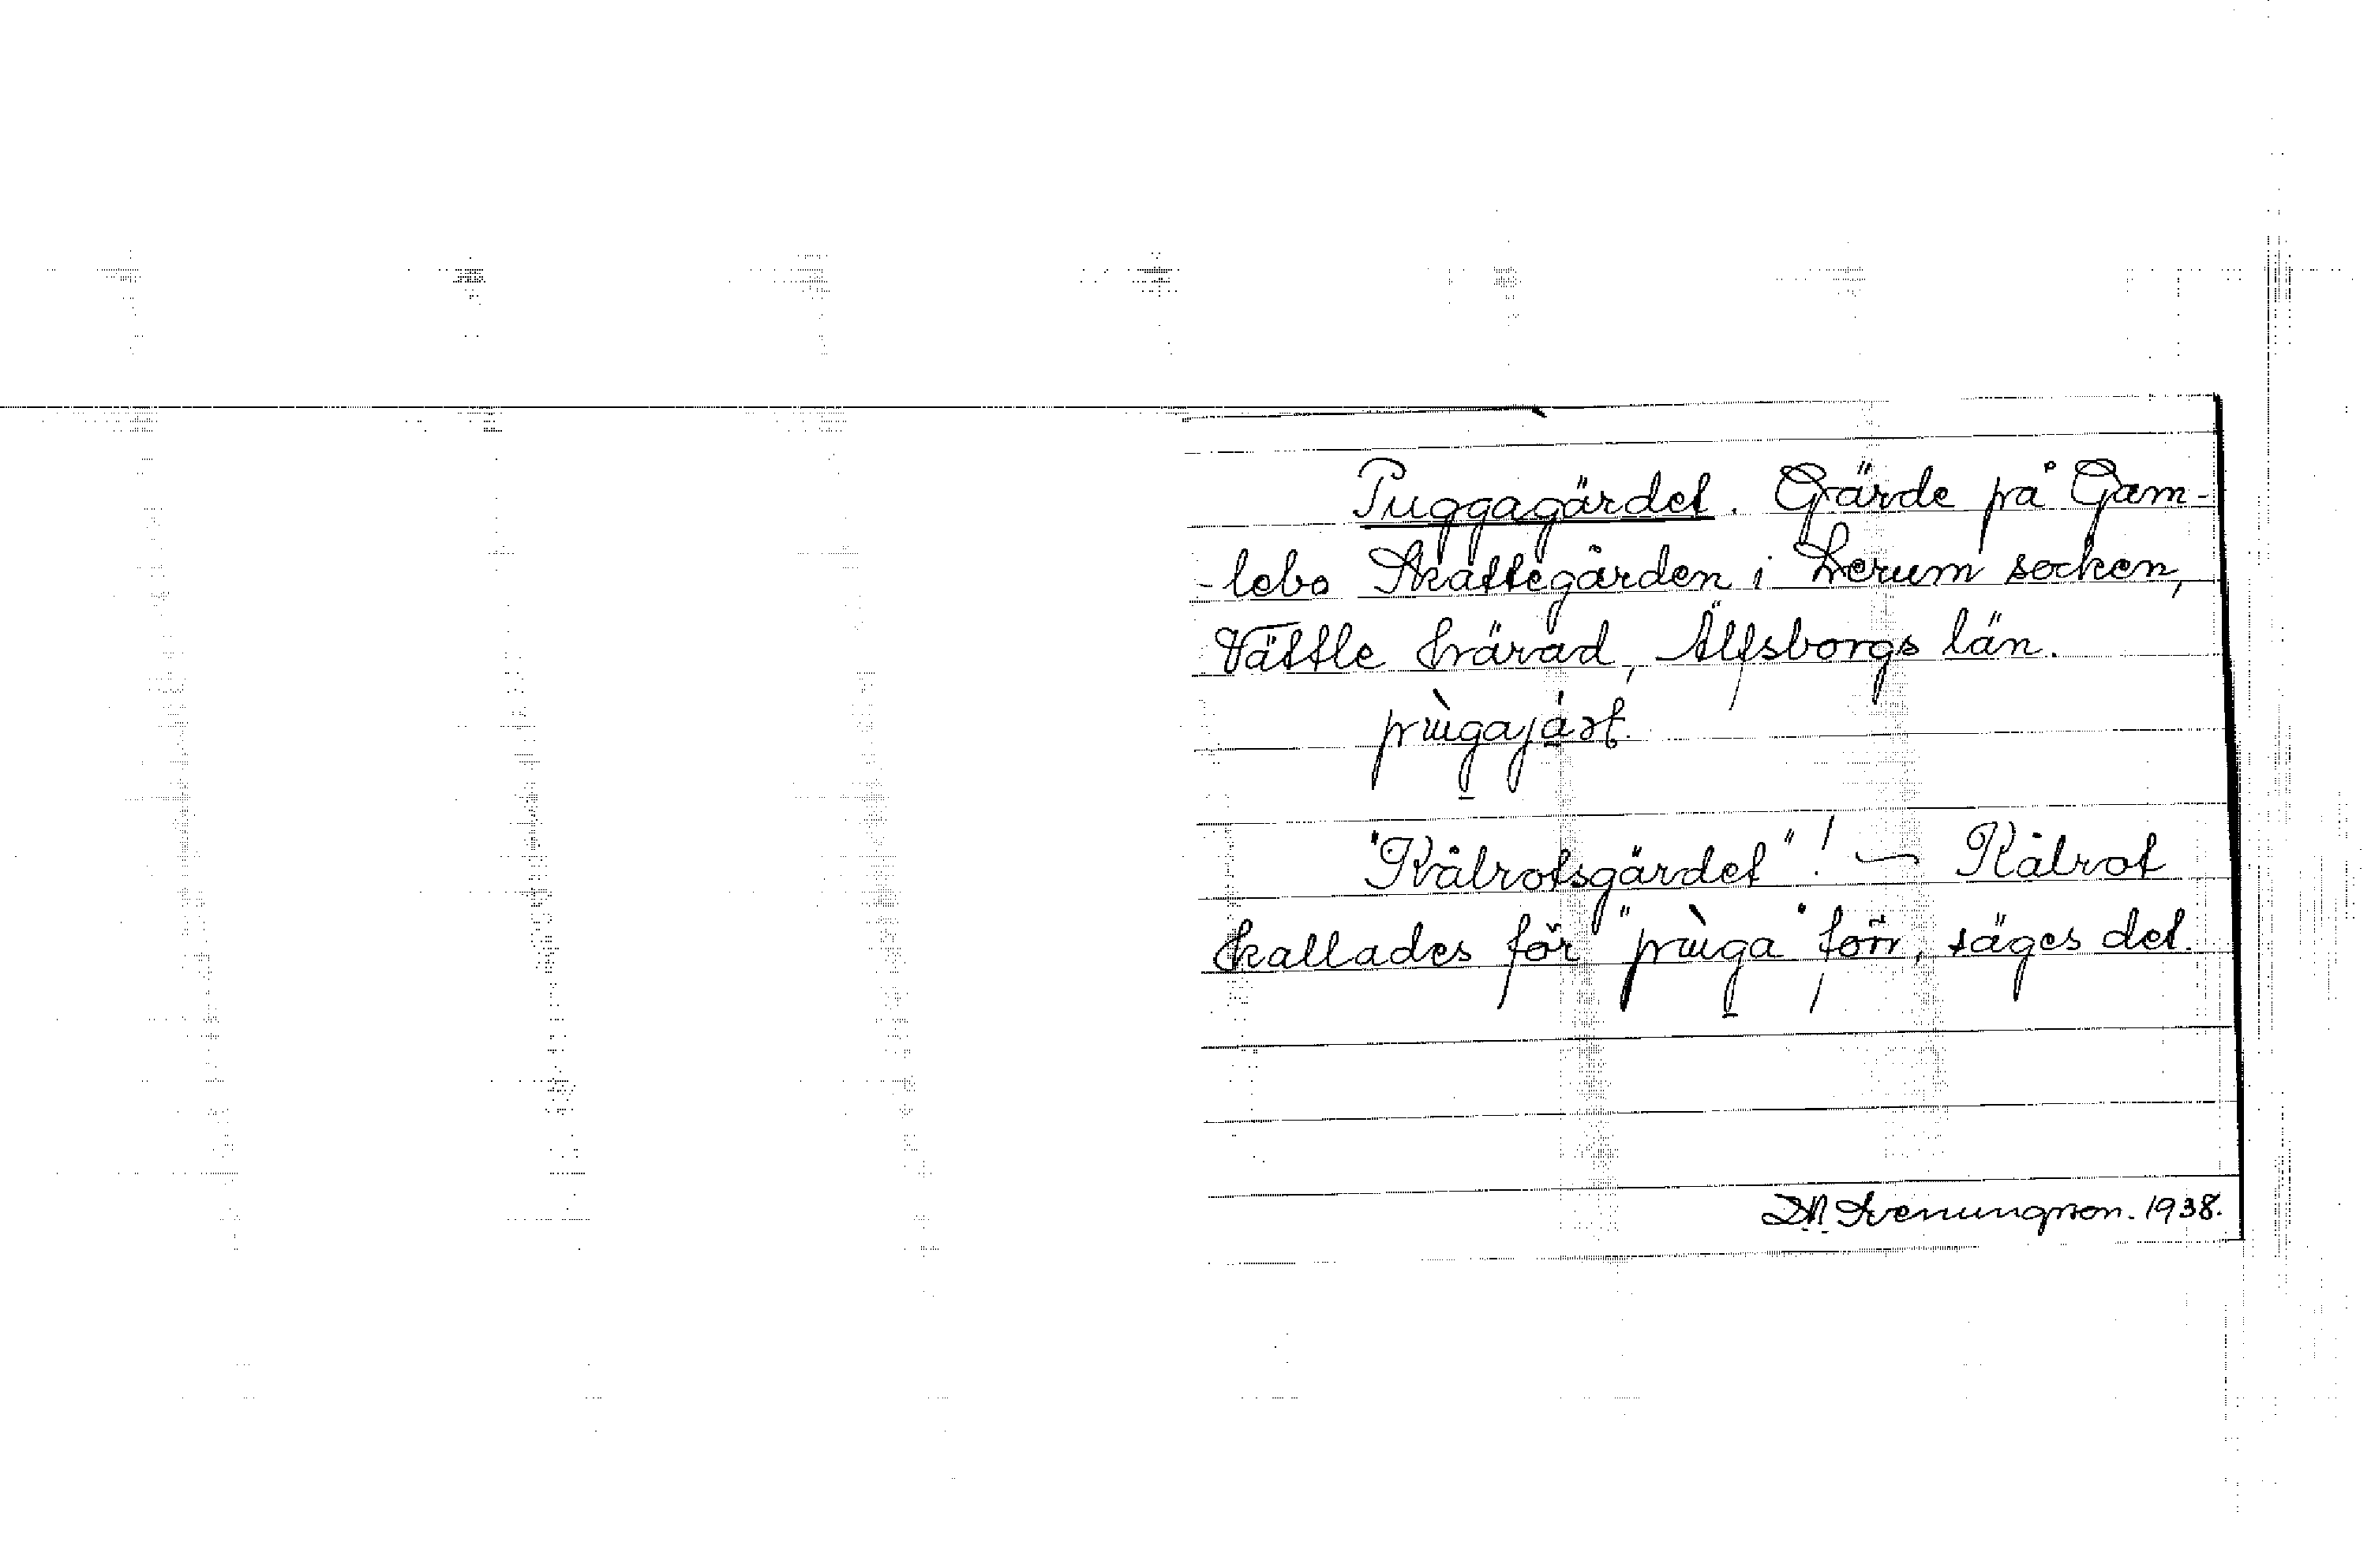 Puggagärdet. Gärde på Gam-
-lebo Skattegården i Lerum socken,
Vättle härad, Älfsborgs län.
pùgajäṣt.
"Kålrotsgärdet"! — Kålrot
kallades för "pùga" förr, säges det.
D.N. Svenungsson. 1938.